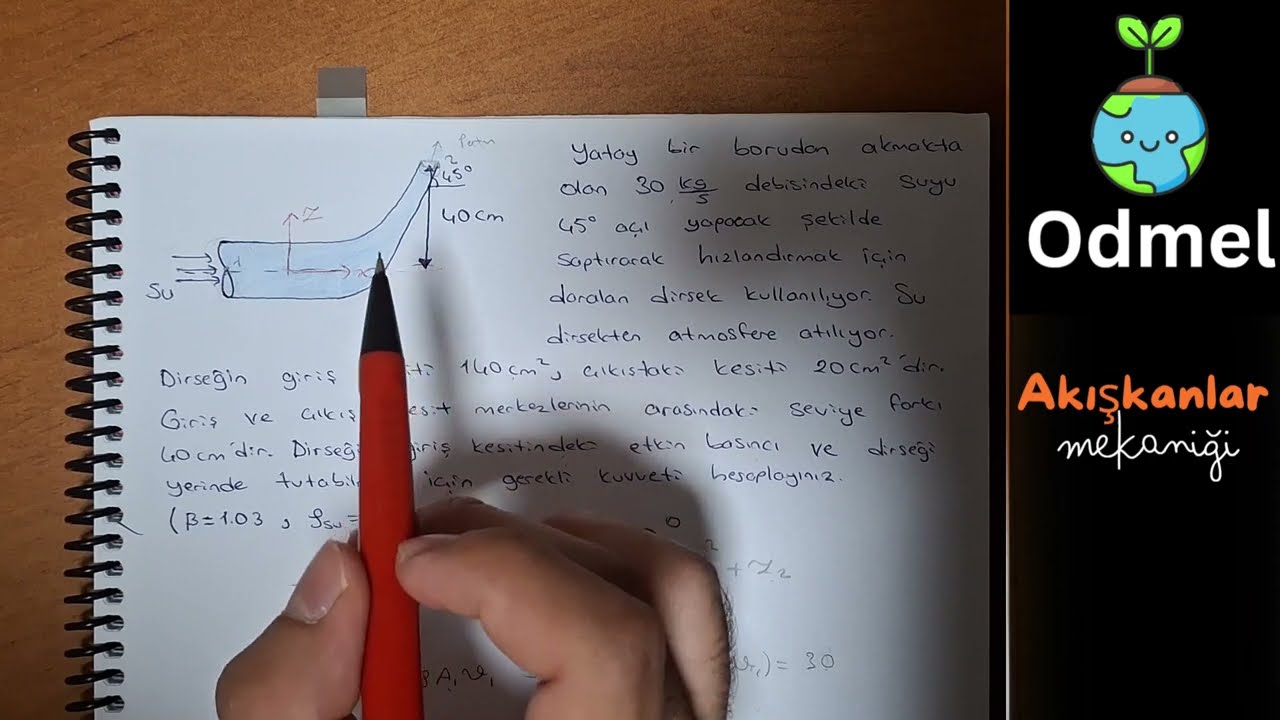 Patm
2
45°
Z
40cm
1
x
Su
Yatay bir borudan akmakta
olan 30 kg/s debisindeki suyu
45° açı yapacak şekilde
saptırarak hızlandırmak için
daralan dirsek kullanılıyor. Su
dirsekten atmosfere atılıyor.
Dirseğin giriş 140cm², çıkıştaki kesiti 20cm²'dir.
Giriş ve çıkış merkezlerinin arasındaki seviye farkı
40cm'dir. giriş kesitindeki etkin basıncı ve dirseği
yerinde için gerekli kuvveti hesaplayınız.
(β=1.03, ρsu =
0
2
+ Z₂
ρA₁ϑ₁ ) = 30
Odmel
Akışkanlar
mekaniği